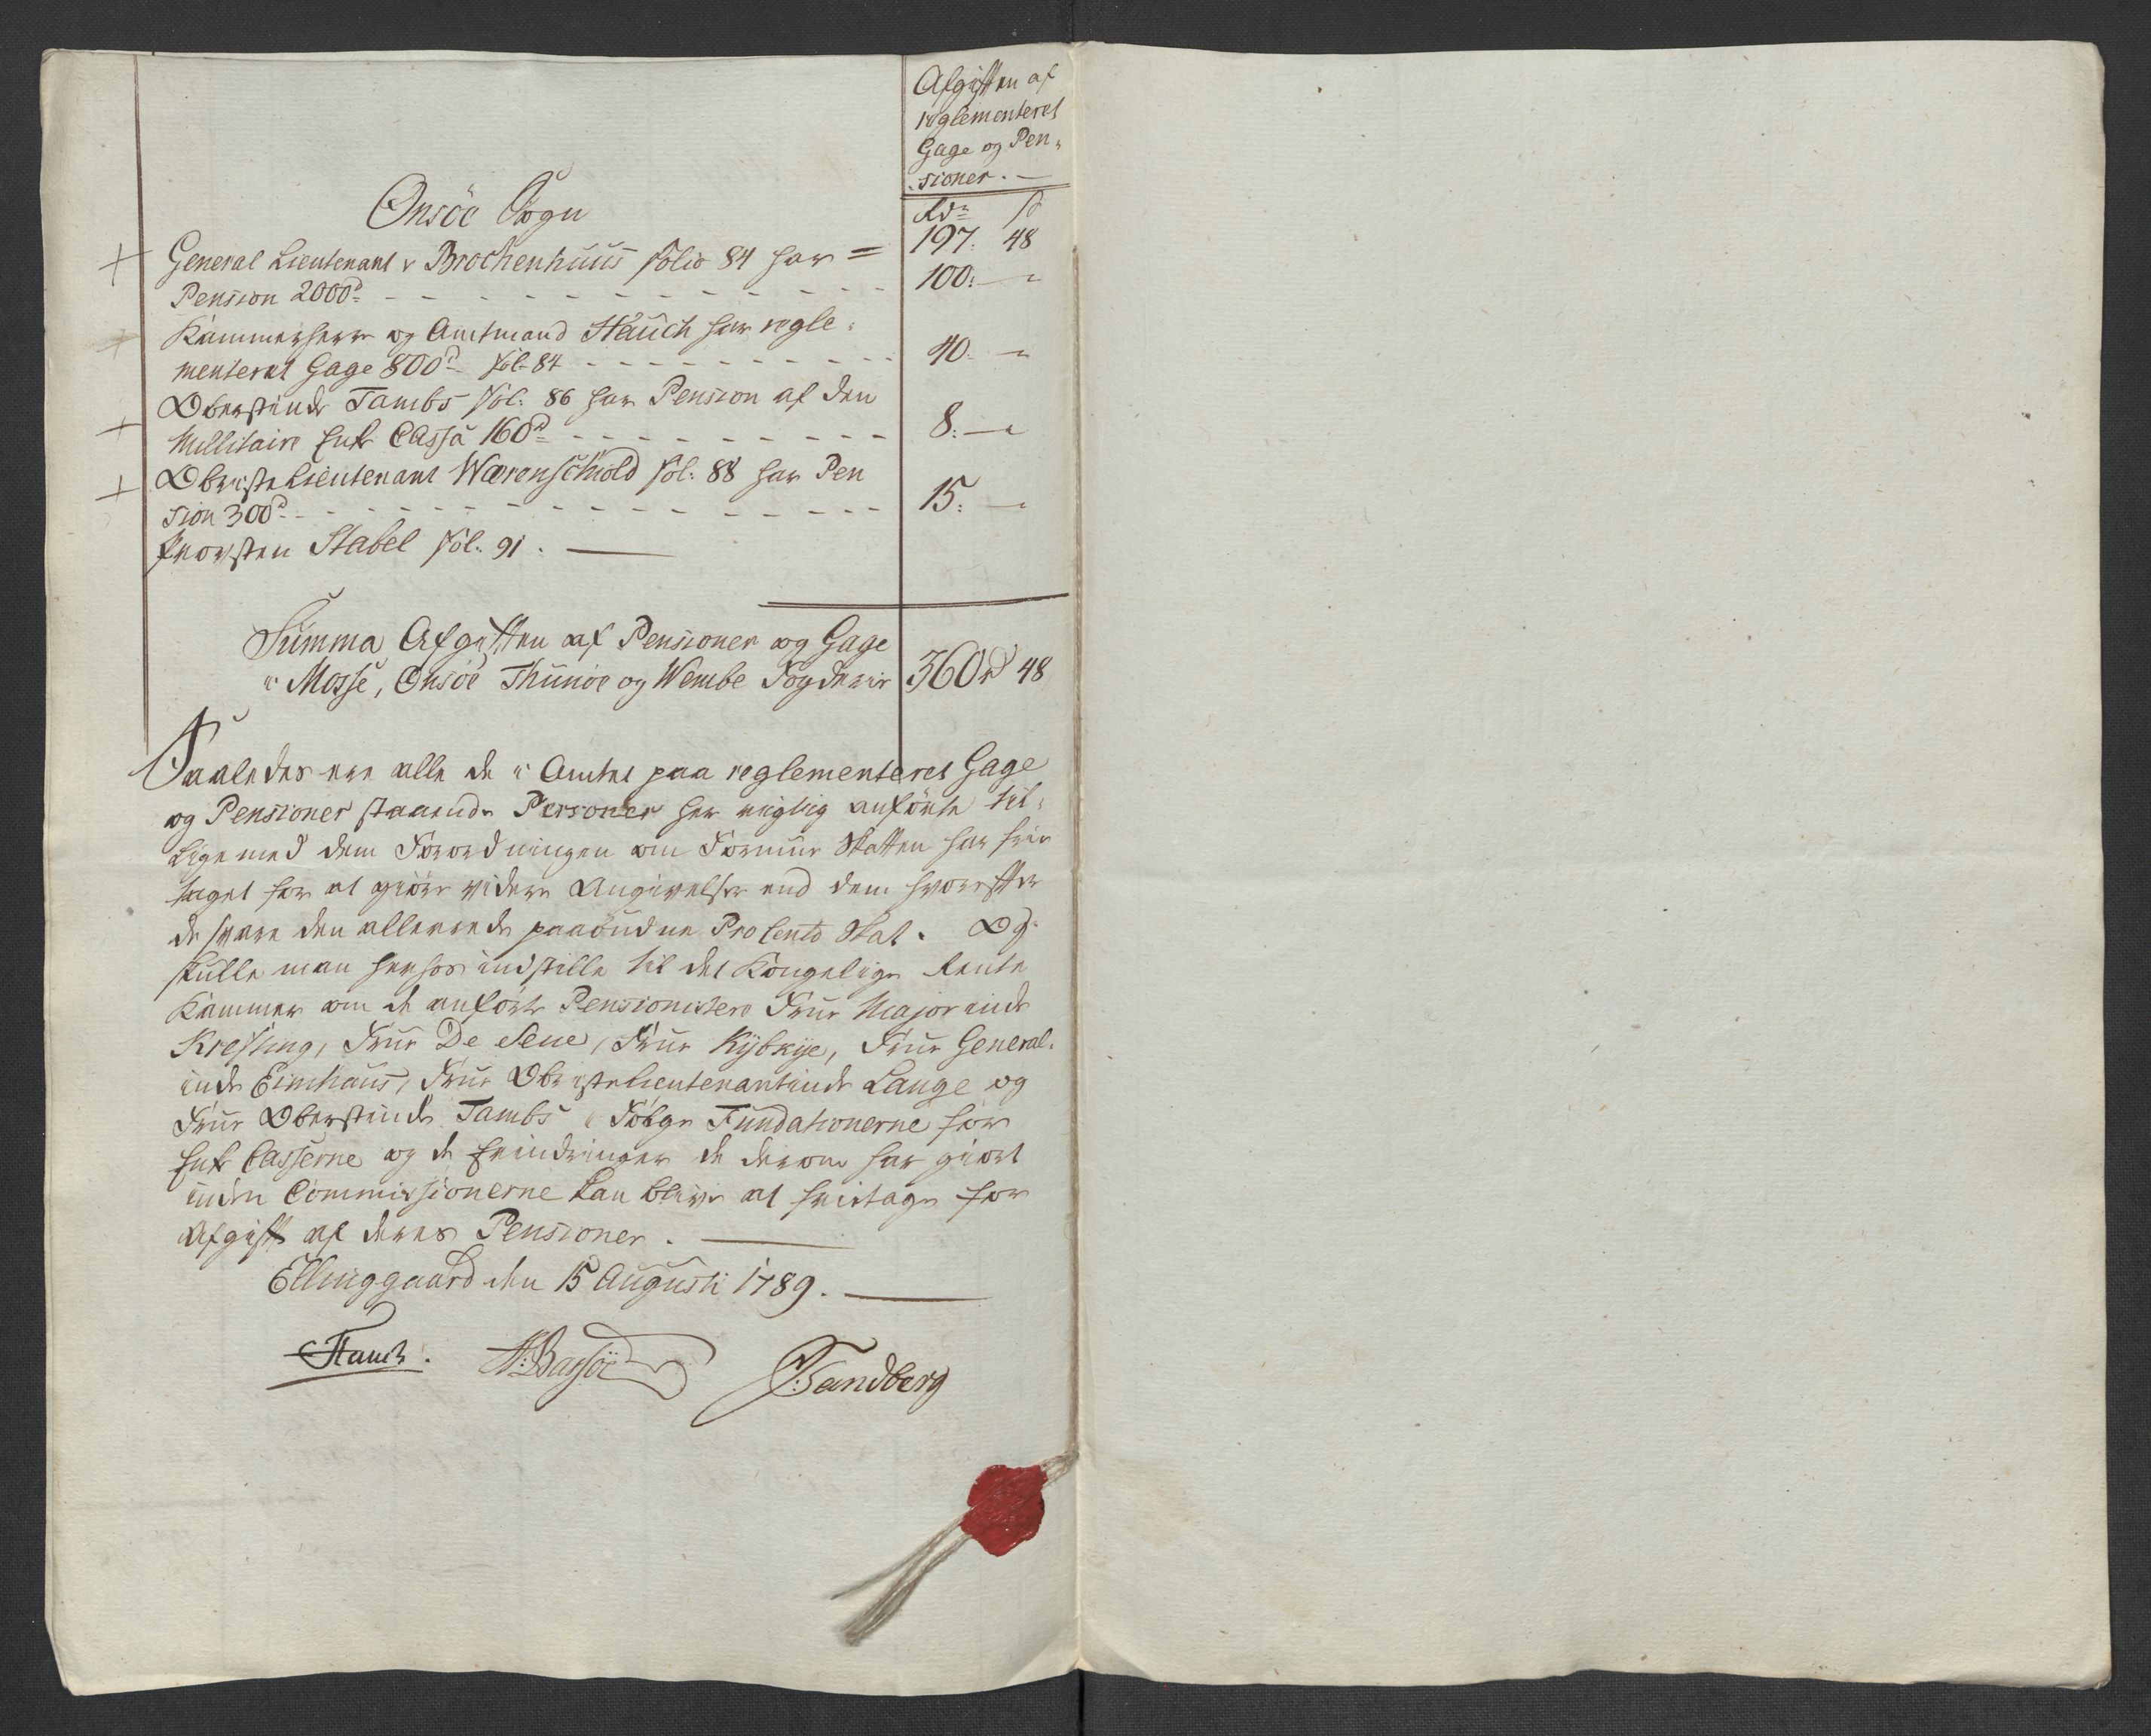 Afgiften af
reglementeret
Gage og Pen-
sioner. —
Rdr ß
197. 48
Onsöe Sogn
General Lieutenant v Brochenhuus folio 84 har =
Pension 2000d 100:
Kammerherr og Amtmand Hauch har regle-
menteret Gage 800d fol: 84 40.
Oberstinde Tambs fol: 86 har Pension af den
Millitaire Enke Cassa 160d 8:
Oberste Lieutenant Wærenschiold fol: 88 har Pen
sion 300d 15:
Provsten Stabel fol: 91. —
Summa Afgiften af Pensioner og Gage
i Mosse, Onsöe Thunöe og Wembe Fogderie 360rd 48
Saaledes ere alle de i Amtet paa reglementeret Gage
og Pensioner staaende Personer her rigtig anförte til-
lige med dem Forordningen om Formue Skatten har frie
taget for at giöre videre Angivelse end dem hvorefter
de svare den allerrede paabudne Procento Skat. Og
skulle man herhos indstille til det Kongelige Rente
Kammer om de anförte Pensionister Frue Majorinde
Krefting, Frue De Seue, Frue Kybkye, Frue General-
inde Eimhaus, Frue Obersteleutenantinde Lange og
Frue Oberstinde Tambs i Fölge Fundationerne for
Enke Casserne og de Erindringer de derom har giort
inden Commissionerne kan blive at frietage for
Afgift af deres Pensioner. —
Ellinggaard den 15 Augusti 1789. —
Hauch. N: Bassöe Sandberg